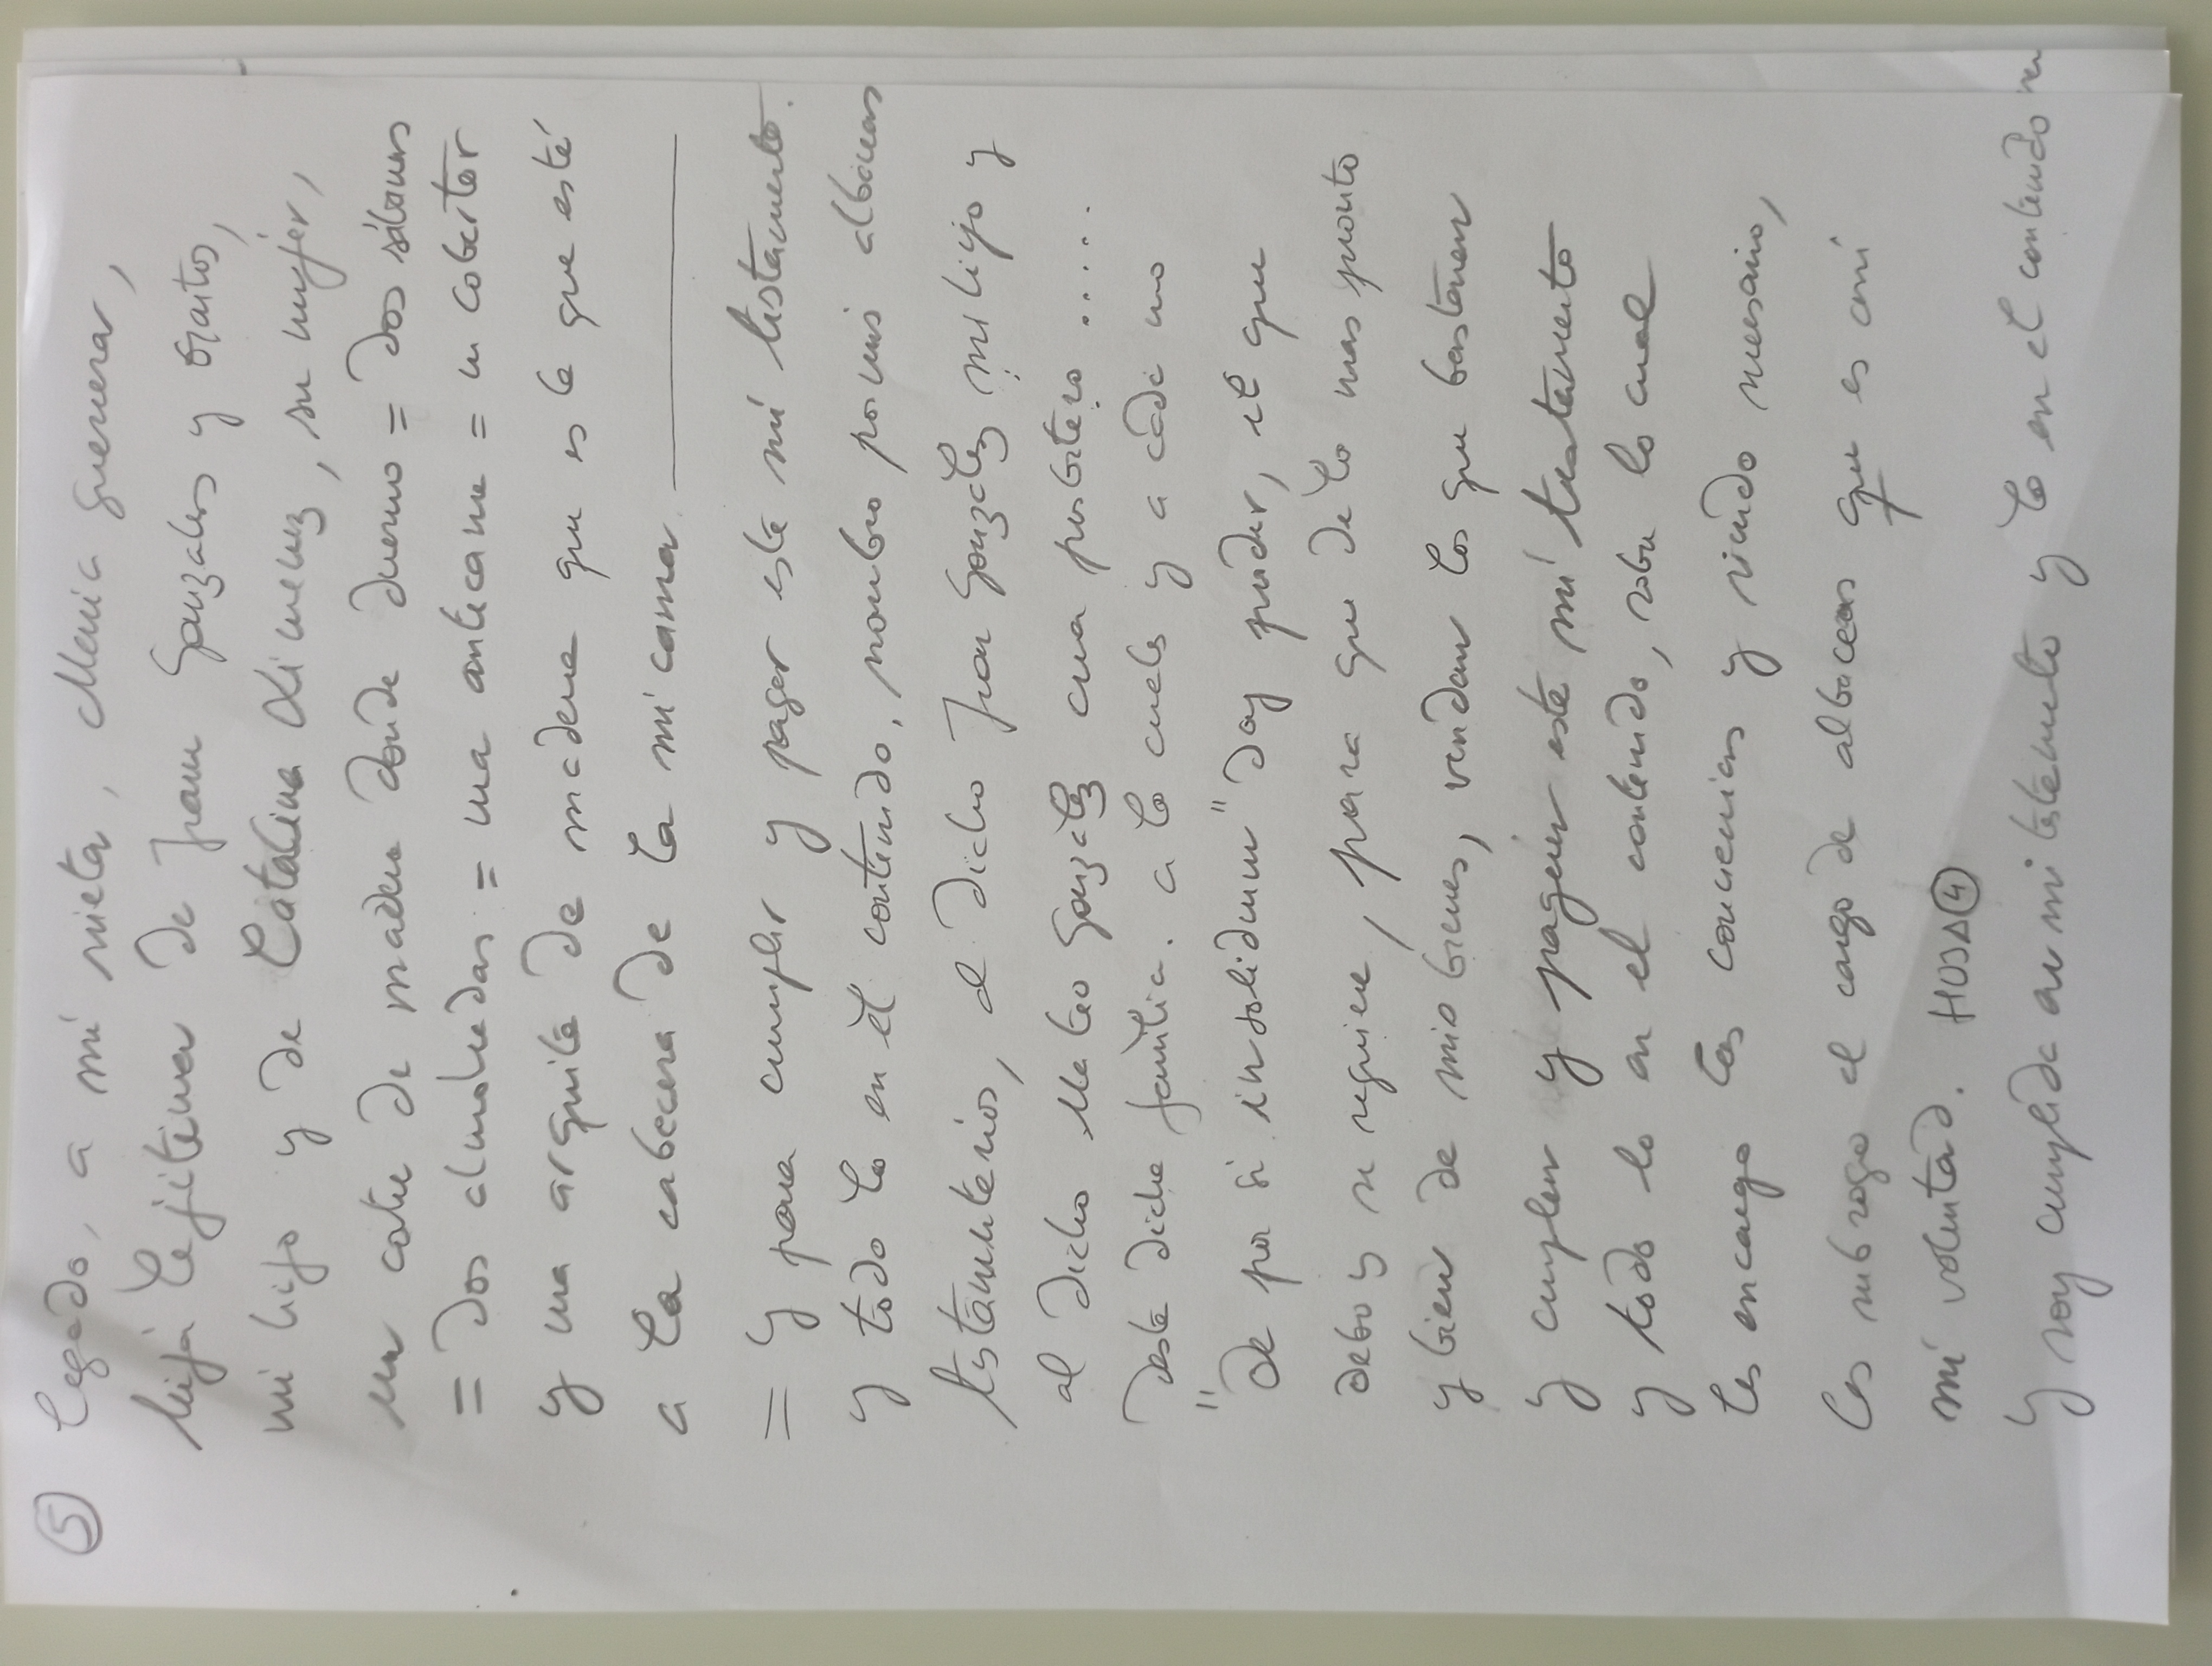 ⑤ legado, a mi nieta, Maria guerrera,
hija lejitima de Juan Gonzales y
mi hijo y de Catalina Ximenez, su mujer,
un catre de madera donde duermo = dos sábanas
= dos almohadas = una antecama = un cobertor
y una arquita de madera que es la que está
a la cabecera de la mi cama
= Y para cumplir y pagar este mi testamento.
y todo lo en el contenido, nombro por mis albaceas
testamentarios, al dicho Juan González mi hijo y
al dicho Mateo González cura presbitero .....
deste dicha familia. a lo cuales y a cada uno
"de por si insolidum" doy poder, el que
debo y se requiere, para que de lo mas pronto
y bien de mis bienes, vendan los que bastaren
y cumplan y paguen este mi testamento
y todo lo en el contenido, sobre lo cual
les encargo las conciencias y siendo necesario,
les subrogo el cargo de albaceas que es asi
mi voluntad. HOJA ④
Y soy cumplida en mi testamento y lo en el contenido